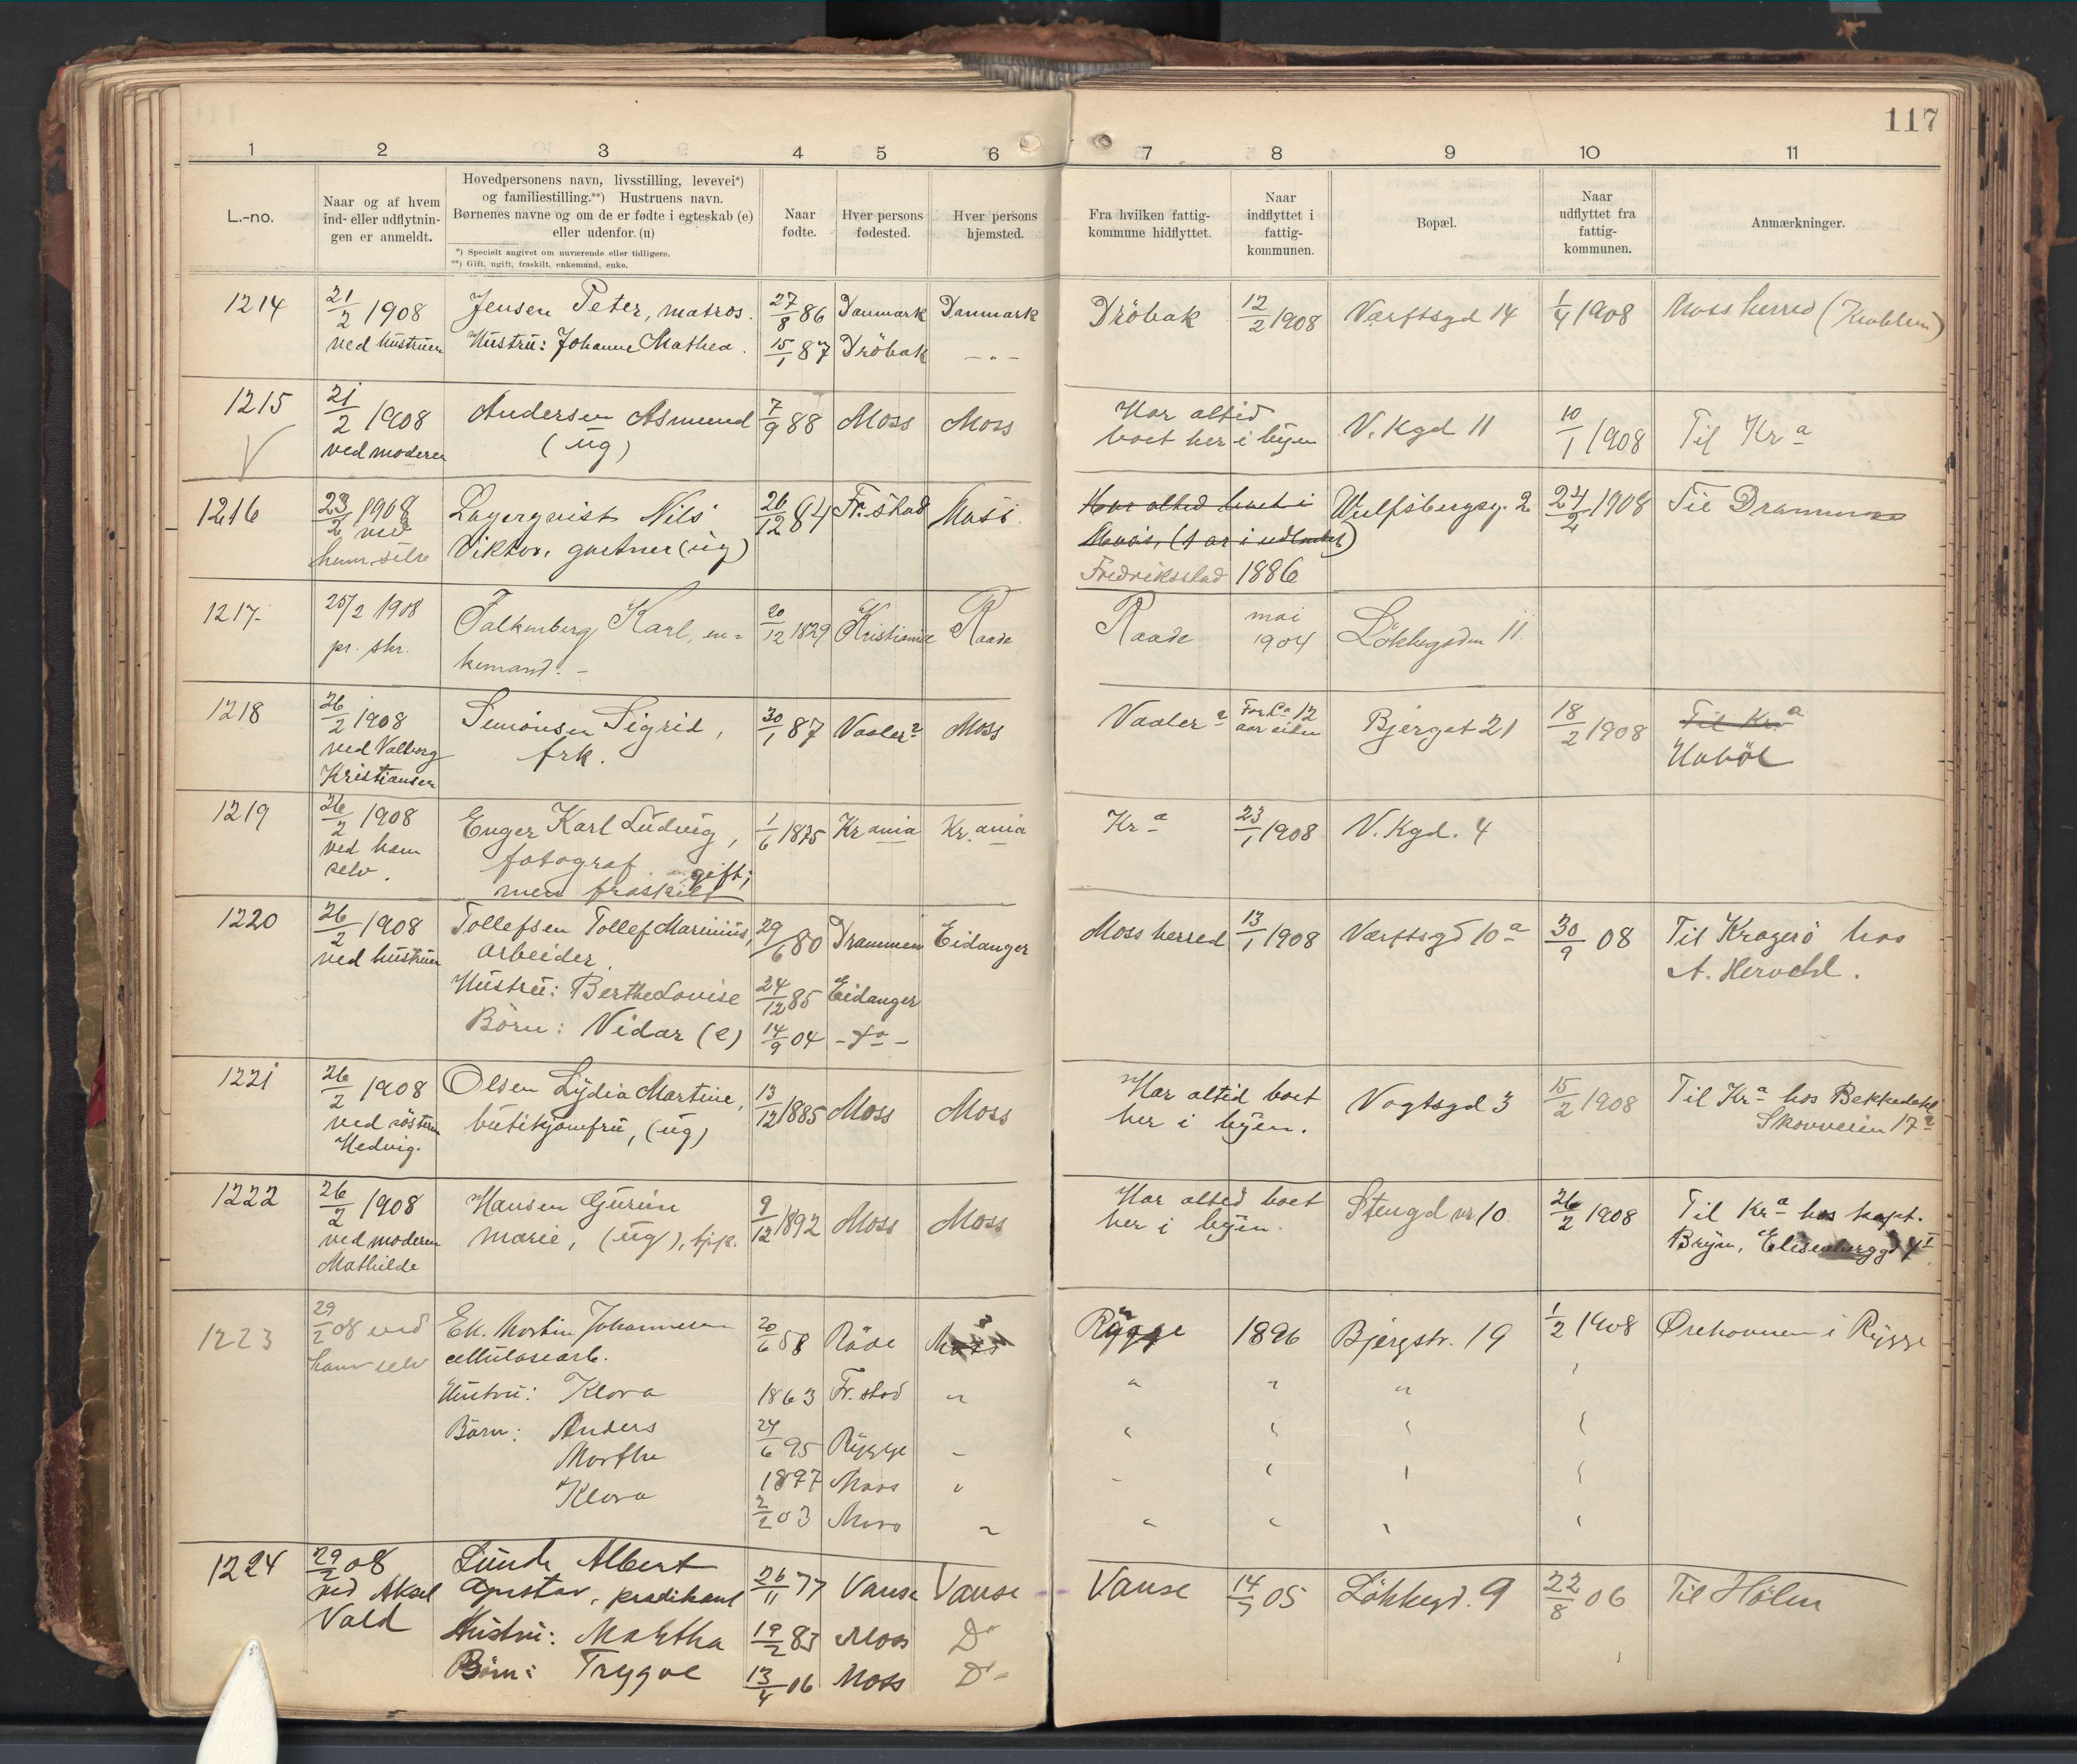 117
1 2 3 4 5 6 7 8 9 10 11
L.-no.
Naar og af hvem
ind- eller udflytnin-
gen er anmeldt.
Hovedpersonens navn, livsstilling, levevei*)
og familiestilling.**) Hustruens navn.
Børnenes navne og om de er fødte i egteskab (e)
eller udenfor. (u)
*) Specielt angivet om nuværende eller tidligere.
**) Gift, ugift, fraskilt, enkemand, enke.
Naar
fødte.
Hver persons
fødested.
Hver persons
hjemsted.
Fra hvilken fattig-
kommune hidflyttet.
Naar
indflyttet i
fattig-
kommunen.
Bopæl.
Naar
udflyttet fra
fattig-
kommunen.
Anmærkninger.
1214 21/2 1908 Jensen Peter, matros. 27/8 86 Danmark Danmark Dröbak 12/2 1908 Værftsgd 14 1/4 1908 Moss herred
ved hustruen Hustru: Johanne Mathea. 15/1 87 Dröbak - " -
1215 21/2 1908 Andersen Asmund 7/9 88 Moss Moss Har altid V. Kgd 11 10/1 1908 Til Kr a
ved moderen (ug) boet her i byen
1216 23/2 1908 Lagerqvist Nils 26/12 84 Fr.stad Moss Har altid boet i Wulfsbergsg. 2 24/2 1908 Til Drammen
ved
ham selv Viktor, gartner (ug) Moss, (1 ar i udlandet)
Fredriksstad 1886
1217 25/2 1908 Falkenberg Karl, en- 20/12 1829 Kristiania Raade Raade mai 1904 Løkkegaden 11.
pr. skr. kemand. -
1218 26/2 1908 Simonsen Sigrid, 30/1 87 Vaaler? Moss Vaaler? For Ca 12 Bjerget 21 18/2 1908 Til Kr a
ved Valborg frk. aar siden Hobøl
Kristiansen
1219 26/2 1908 Enger Karl Ludvig, 1/6 1875 Kr ania Kr. ania Kr a 23/1 1908 V. Kgd. 4
ved ham fotograf gift;
selv. men fraskilt
1220 26/2 1908 Tollefsen Tollef Marinius, 29/6 80 Drammen Eidanger Moss herred 13/1 1908 Værftsgd 10 a 30/9 08 Til Kragerö hos
ved hustruen arbeider. A. Herodel.
Hustru: Berthe Lovise 24/12 85 Eidanger
Börn: Vidar (e) 14/9 04 - do -
1221 26/2 1908 Olsen Lydia Martine, 13/12 1885 Moss Moss Har altid boet Vogtsgd 3 15/2 1908 Til Kr a hos Bekkedahl
ved söstern butikjomfru, (ug) her i byen. Skovveien 17 a
Hedvig.
1222 26/2 1908 Hansen Gurine 9/12 1892 Moss Moss Har altid boet Stengd nr 10 26/2 1908 Til Kr a hos kapt.
ved moderen Marie, (ug), tjp. her i byen. Bryn, Elisenberggd 4 I
Mathilde
1223 29/2 08 ved Ek. Martin Johannesen 20/6 58 Råde Moss ? Rygge 1896 Bjergstr. 19 1/2 1908 Ørehavnen i Rygge
ham selv cellulosearb.
Hustru: Klara 1863 Fr. stad " " " "
Börn: Anders 24/6 95 Rygge
Marthe 1897 Moss
Klara 2/2 03 Moss
1224 29/2 08 Lunde Albert 26/11 77 Vanse Vanse Vanse 14/7 05 Løkkegd. 9 22/8 06 Til Hölen
ved Aksel Gustav, prædikant
Vold Hustru: Martha 19/2 83 Moss Do
Börn: Trygve 13/4 06 Moss Do